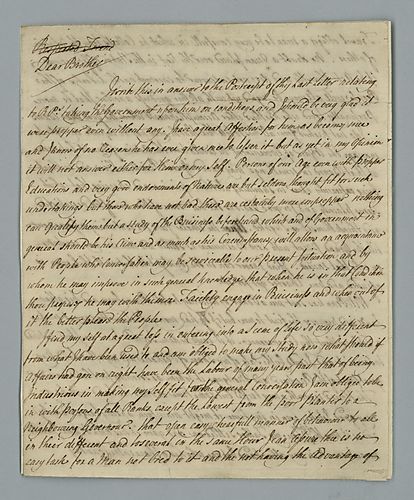 Respected Friend
Dear Brother
I write this in answer to the Postscript of thy last Letter relating
to B.P. taking the Government upon him on conditions and should be very glad it
were proper even without any. I have a great Affection for him as becomes me
and I know of no Reason he has ever given me to lessen it but as yet in my Opinion
it will not answer either for Him or my Self. Persons of our Age even with proper
Educations and very good endowments of Nature are but seldom thought fit for such
undertakings but those who have not had these are certainly more improper nothing
can qualify them but a study of the Business beforehand which and of Government in
general should be his Care and as much as his Circumstances will allow an acquaintance
with People whose Conversation may be serviceable in our present Situation and by
whom he may improve in such general knowledge that when he is as that Condition
thou prayest he may with the more Safety engage in Business and when out of
it the better please the People
I find my self at a great loss in entering into a Scene of Life so very different
from what I have been used to and am obliged to make my Study now what should if
Affairs had gon on right have been the Labour of many years past that of being
Industrious in making my Self fit for the general Conversation I am obliged to be
in with Persons of all Ranks except the Lowest from the poor Planter to a
Neighbouring Governour. that open easy chearfull manner of behaviour to all
in their different and to several in the same Hour I can assure thee is no
easy task for a Man not bred to it and the not having the advantage of